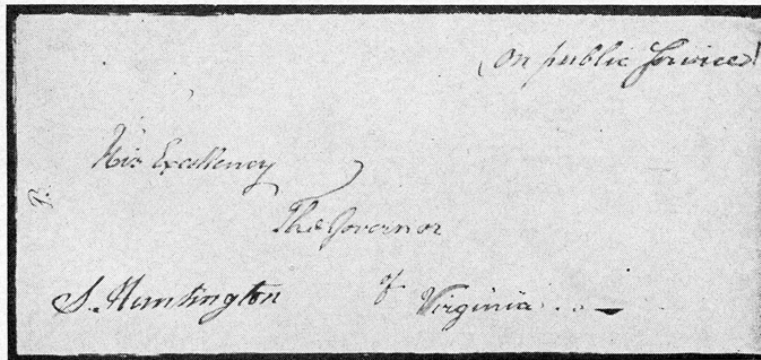 on public Service
His Excellency
The Governor
of
S. Huntington Virginia